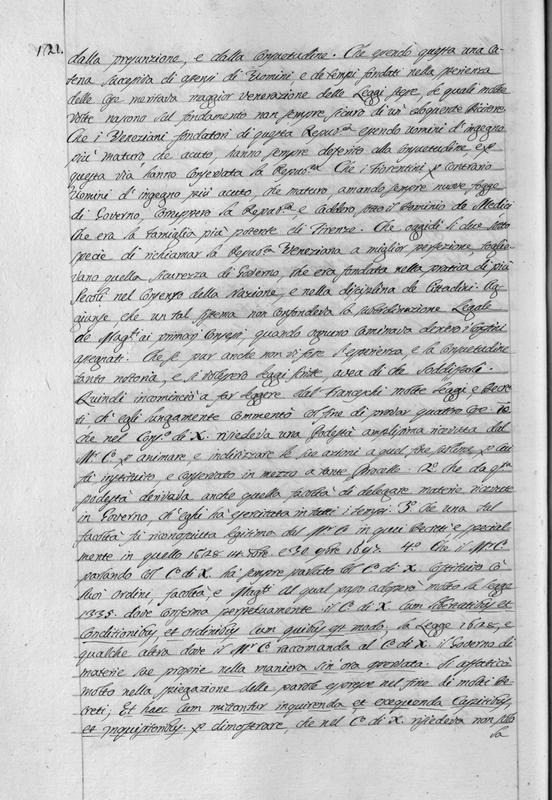 121.
dalla presunzione, e dalla consuetudine. Che essendo questa una Ca-
tena successiva di assensi di Uomini e de tempi fondati nella sperienza
delle Cose meritava maggior venerazione delle Leggi stesse, le quali molte
volte nascono sul fondamento non sempre sicuro di un' eloquente diceria.
Che i Veneziani fondatori di questa Repub.ca essendo uomini d' ingegno
più maturo, che acuto, hanno sempre deferito alla consuetudine, e p
questa via hanno conservata la Repub.ca Che i Fiorentini p contrario
Uomini d' ingegno più acuto, che maturo, amando sempre nuove fogge
di Governo, Corruppero la Repub.ca e caddero sotto il Dominio de Medici
che era la Famiglia più potente di Firenze. Che oggidì li due sotto
specie di richiamar la Repub.ca Veneziana a miglior perfezione, toglie-
vano quella sicurezza di Governo, che era fondata nella pratica di più
secoli nel Consenso della Nazione, e nella disciplina de Cittadini. Ag-
giunse che un tal sistema non confondeva la subordinazione Legale
de Mag.ti ai primarj Consessi quando ognuno caminava dentro i confini
assegnati. Che se pur anche non vi fosse l' esperienza, e la consuetudine
tanto notoria, e si volessero leggi scritte, avea di che soddisfarli.
Quindi incominciò a far leggere dal Franceschi molte Leggi, e Decre-
ti ch' egli lungamente commentò col fine di provar quattro cose. P.o
che nel Cons.o di X. risiedeva una Podestà amplissima ricevuta dal
M.r C. p animare, e indirizzare le sue azioni a quel fine p cui
fu instituito, e conservato in mezzo a tante procelle. 2.o che da q.ta
podestà derivava anche quella facoltà di delegare materie ricevute
in Governo, ch' egli ha esercitata in tutti i tempi. 3.o che una tal
facoltà fu riconosciuta legitima dal M.r C. in quei Decreti e special-
mente in quello 1628 e 30 9bre 1692. 4.o Che il M.r C.
parlando col C. di X. ha sempre parlato col C. di X. costituito co'
suoi Ordini, facoltà, e Mag.ti al qual passo adoperò molto la legge
1335. dove conferma perpetuamente il C. di X. cum libertatibus et
Conditionibus et ordinibus cum quibus est modo, la Legge 1628, e
qualche altra dove il M.r C. raccomanda al C. di X. il Governo di
materie sue proprie nella maniera sin' ora osservata. Si affaticò
molto nella spiegazione delle parole espresse nel fine di molti De-
creti; Et haec cum mittantur inquirenda et exequenda Capitibus,
et inquisitoribus. p dimostrare, che nel C. di X. risiedeva non solo
la